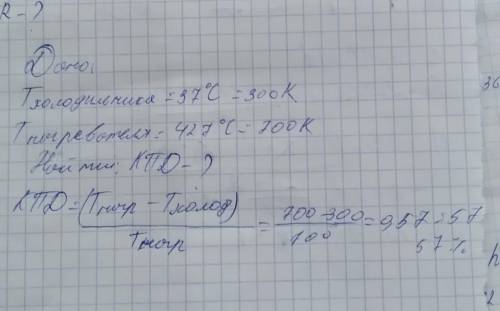 R - ?
Дано:
Тхолодильника = 37°С = 300К
Тнагревателя = 427°С = 700К
Найти: КПД - ?
КПД = (Тнагр - Тхолод) / Тнагр = 700-300 / 700 = 0,57 = 57
57%
36
h
2